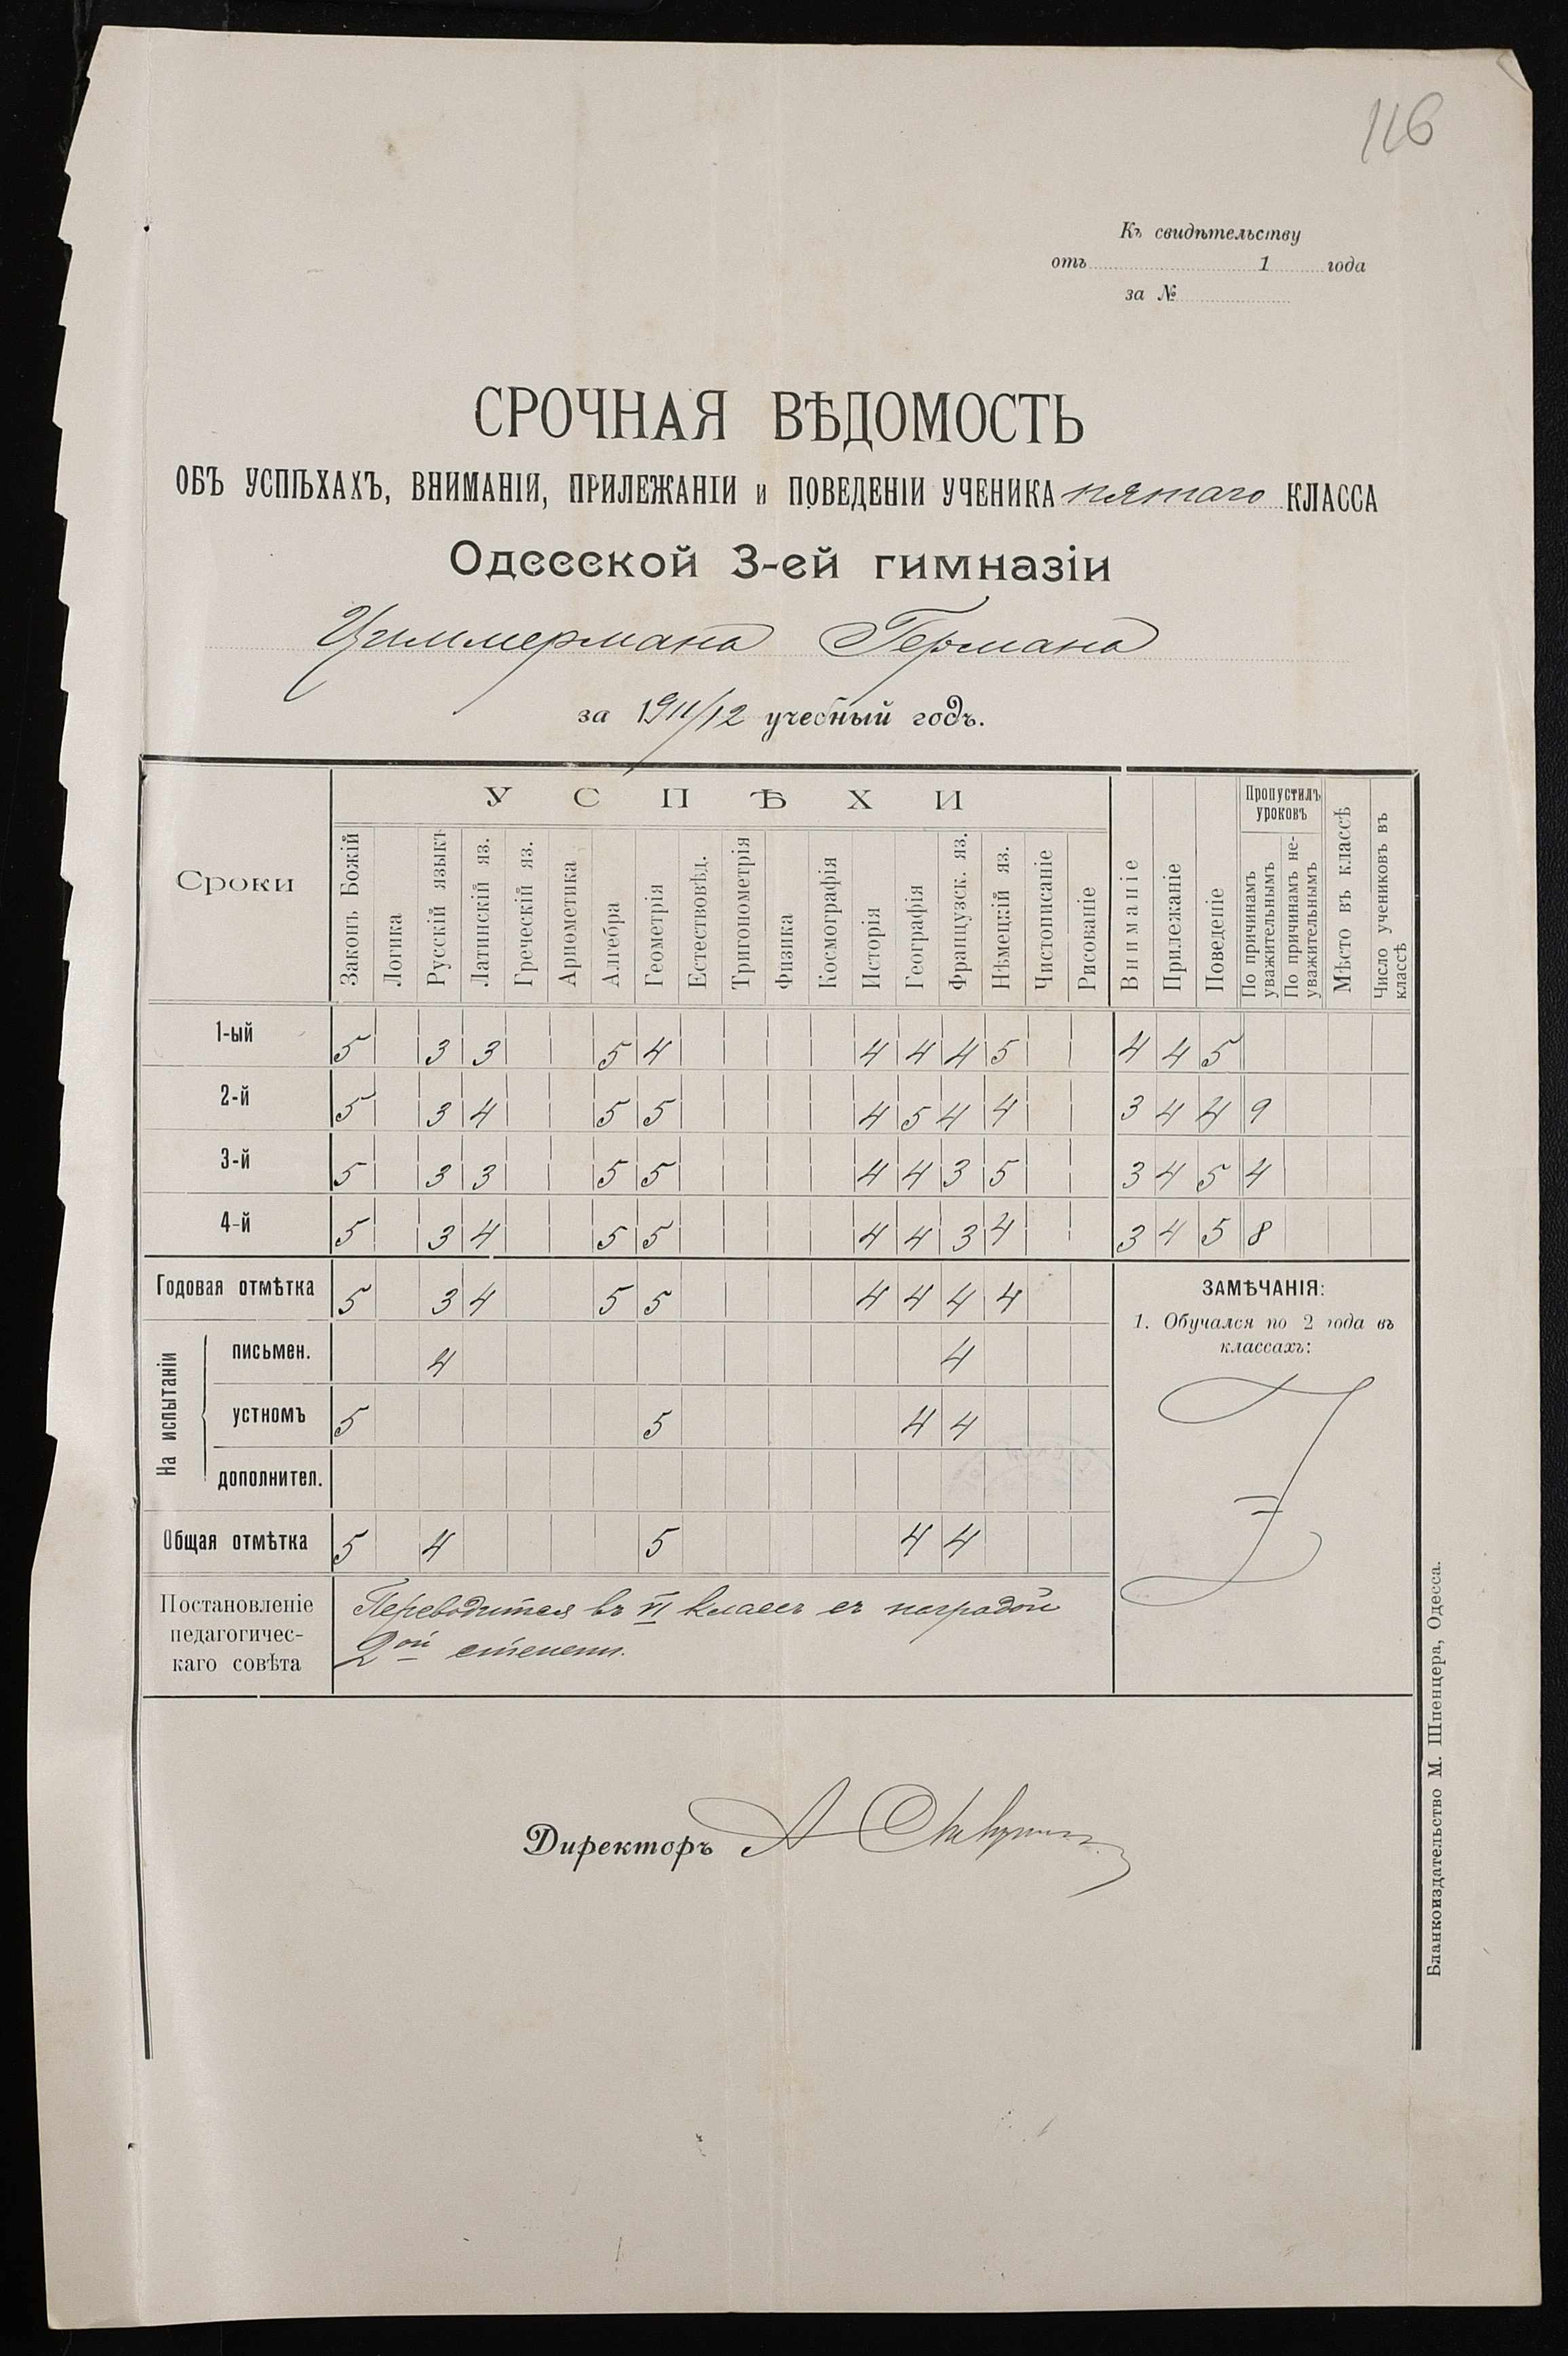 116
Къ свидѣтельству
отъ 1 года
за №
СРОЧНАЯ ВѢДОМОСТЬ
ОБЪ УСПѢХАХЪ, ВНИМАНІИ, ПРИЛЕЖАНІИ и ПОВЕДЕНІИ УЧЕНИКА пятаго КЛАССА
Одесской 3-ей гимназіи
Циммермана Германа
за 1911/12 учебный годъ.
Сроки
УСПѢХИ
Законъ Божій
Логика
Русскій языкъ
Латинскій яз.
Греческій яз.
Ариѳметика
Алгебра
Геометрія
Естествовѣд.
Тригонометрія
Физика
Космографія
Исторія
Географія
Французск. яз.
Нѣмецкій яз.
Чистописаніе
Рисованіе
Вниманіе
Прилежаніе
Поведеніе
Пропустилъ
уроковъ
По причинамъ
уважительнымъ
По причинамъ не-
уважительнымъ
Мѣсто въ классѣ
Число учениковъ въ
классѣ
1-ый 5 3 3 5 4 4 4 4 5 4 4 5
2-й 5 3 4 5 5 4 5 4 4 3 4 4 9
3-й 5 3 3 5 5 4 4 3 5 3 4 5 4
4-й 5 3 4 5 5 4 4 3 4 3 4 5 8
Годовая отмѣтка 5 3 4 5 5 4 4 4 4
На испытаніи
письмен. 4 4
устномъ 5 5 4 4
дополнител.
Общая отмѣтка 5 4 5 4 4
ЗАМѢЧАНІЯ:
1. Обучался по 2 года въ
классахъ:
Постановленіе
педагогичес-
каго совѣта
Переводится въ VI классъ съ наградой
2ой степени.
Директоръ А
Бланкоиздательство М. Шпенцера, Одесса.